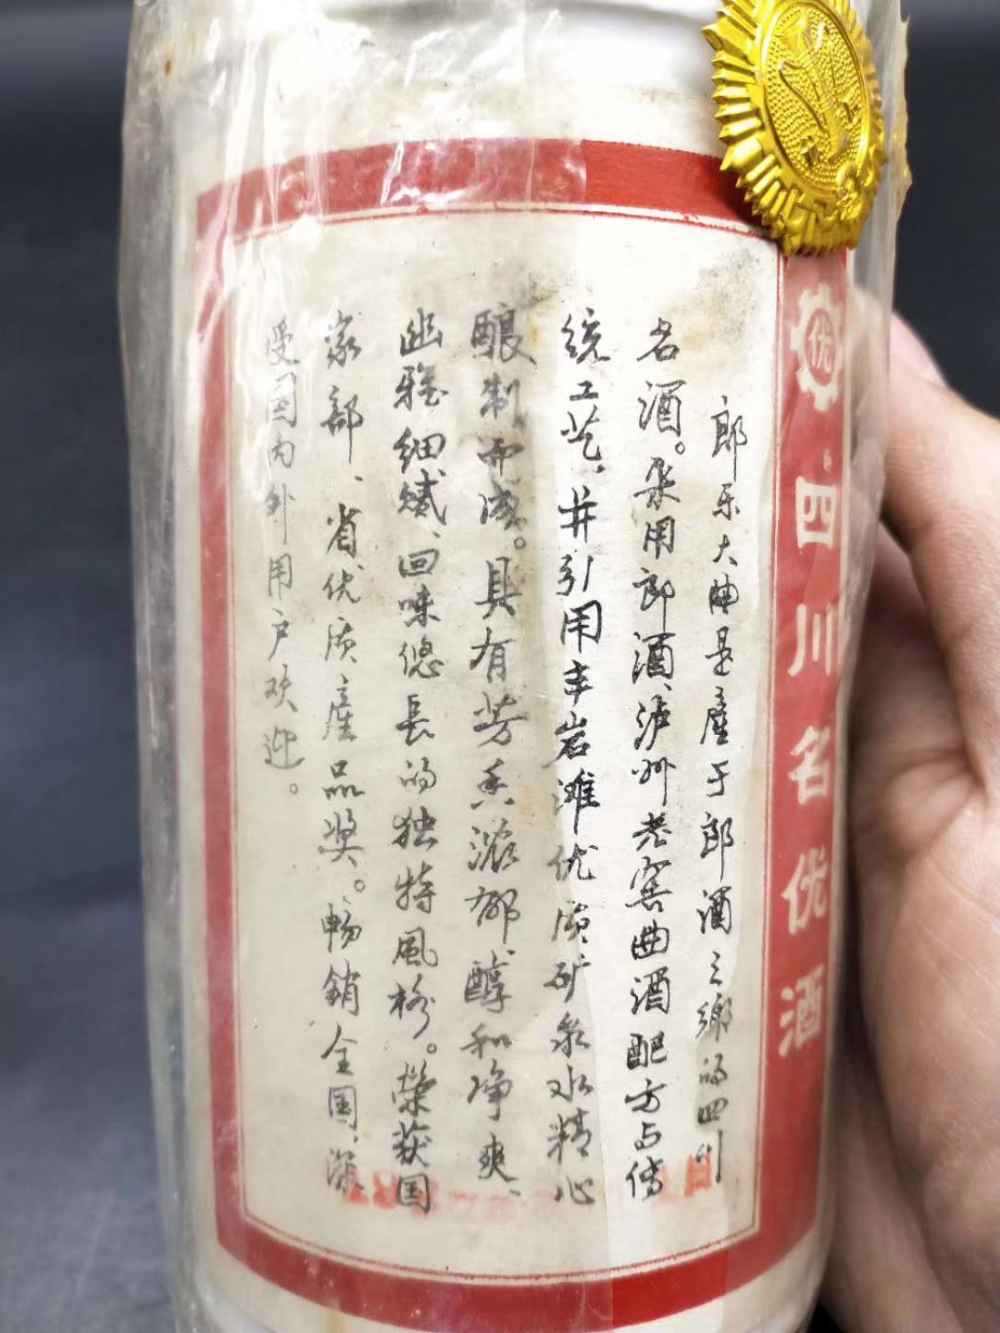 优
四川名优酒
郎乐大曲是産于郎酒之鄉的四川
名酒。采用郎酒、泸州老窖曲酒配方与传
统工艺、并引用丰岩滩优质矿泉水精心
酿制而成。具有芳香浓郁、醇和净爽、
幽雅细腻、回味悠長的独特風格。荣获国
家部、省优质産品奖。畅銷全国、深
受国内外用户欢迎。